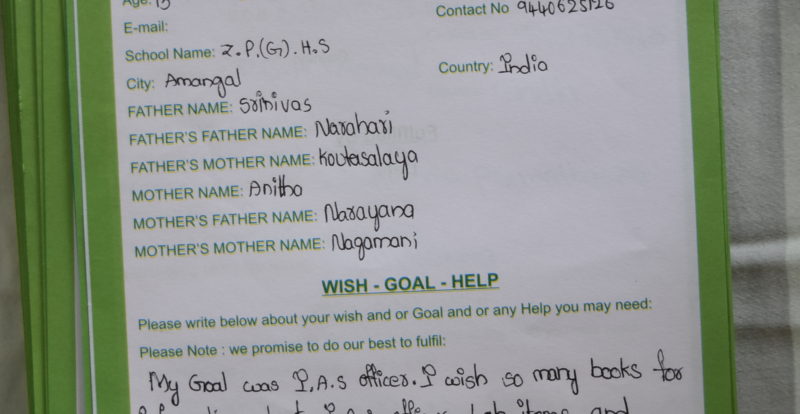 Age: 15
Contact No 9440625126
E-mail:
School Name: Z.P.(G).H.S
City: Amangal
Country: India
FATHER NAME: Srinivas
FATHER'S FATHER NAME: Narahari
FATHER'S MOTHER NAME: Koutasalaya
MOTHER NAME: Anitha
MOTHER'S FATHER NAME: Narayana
MOTHER'S MOTHER NAME: Nagamani
WISH - GOAL - HELP
Please write below about your wish and or Goal and or any Help you may need:
Please Note : we promise to do our best to fulfil:
My Goal was I.A.S officer. I wish so many books for
items and